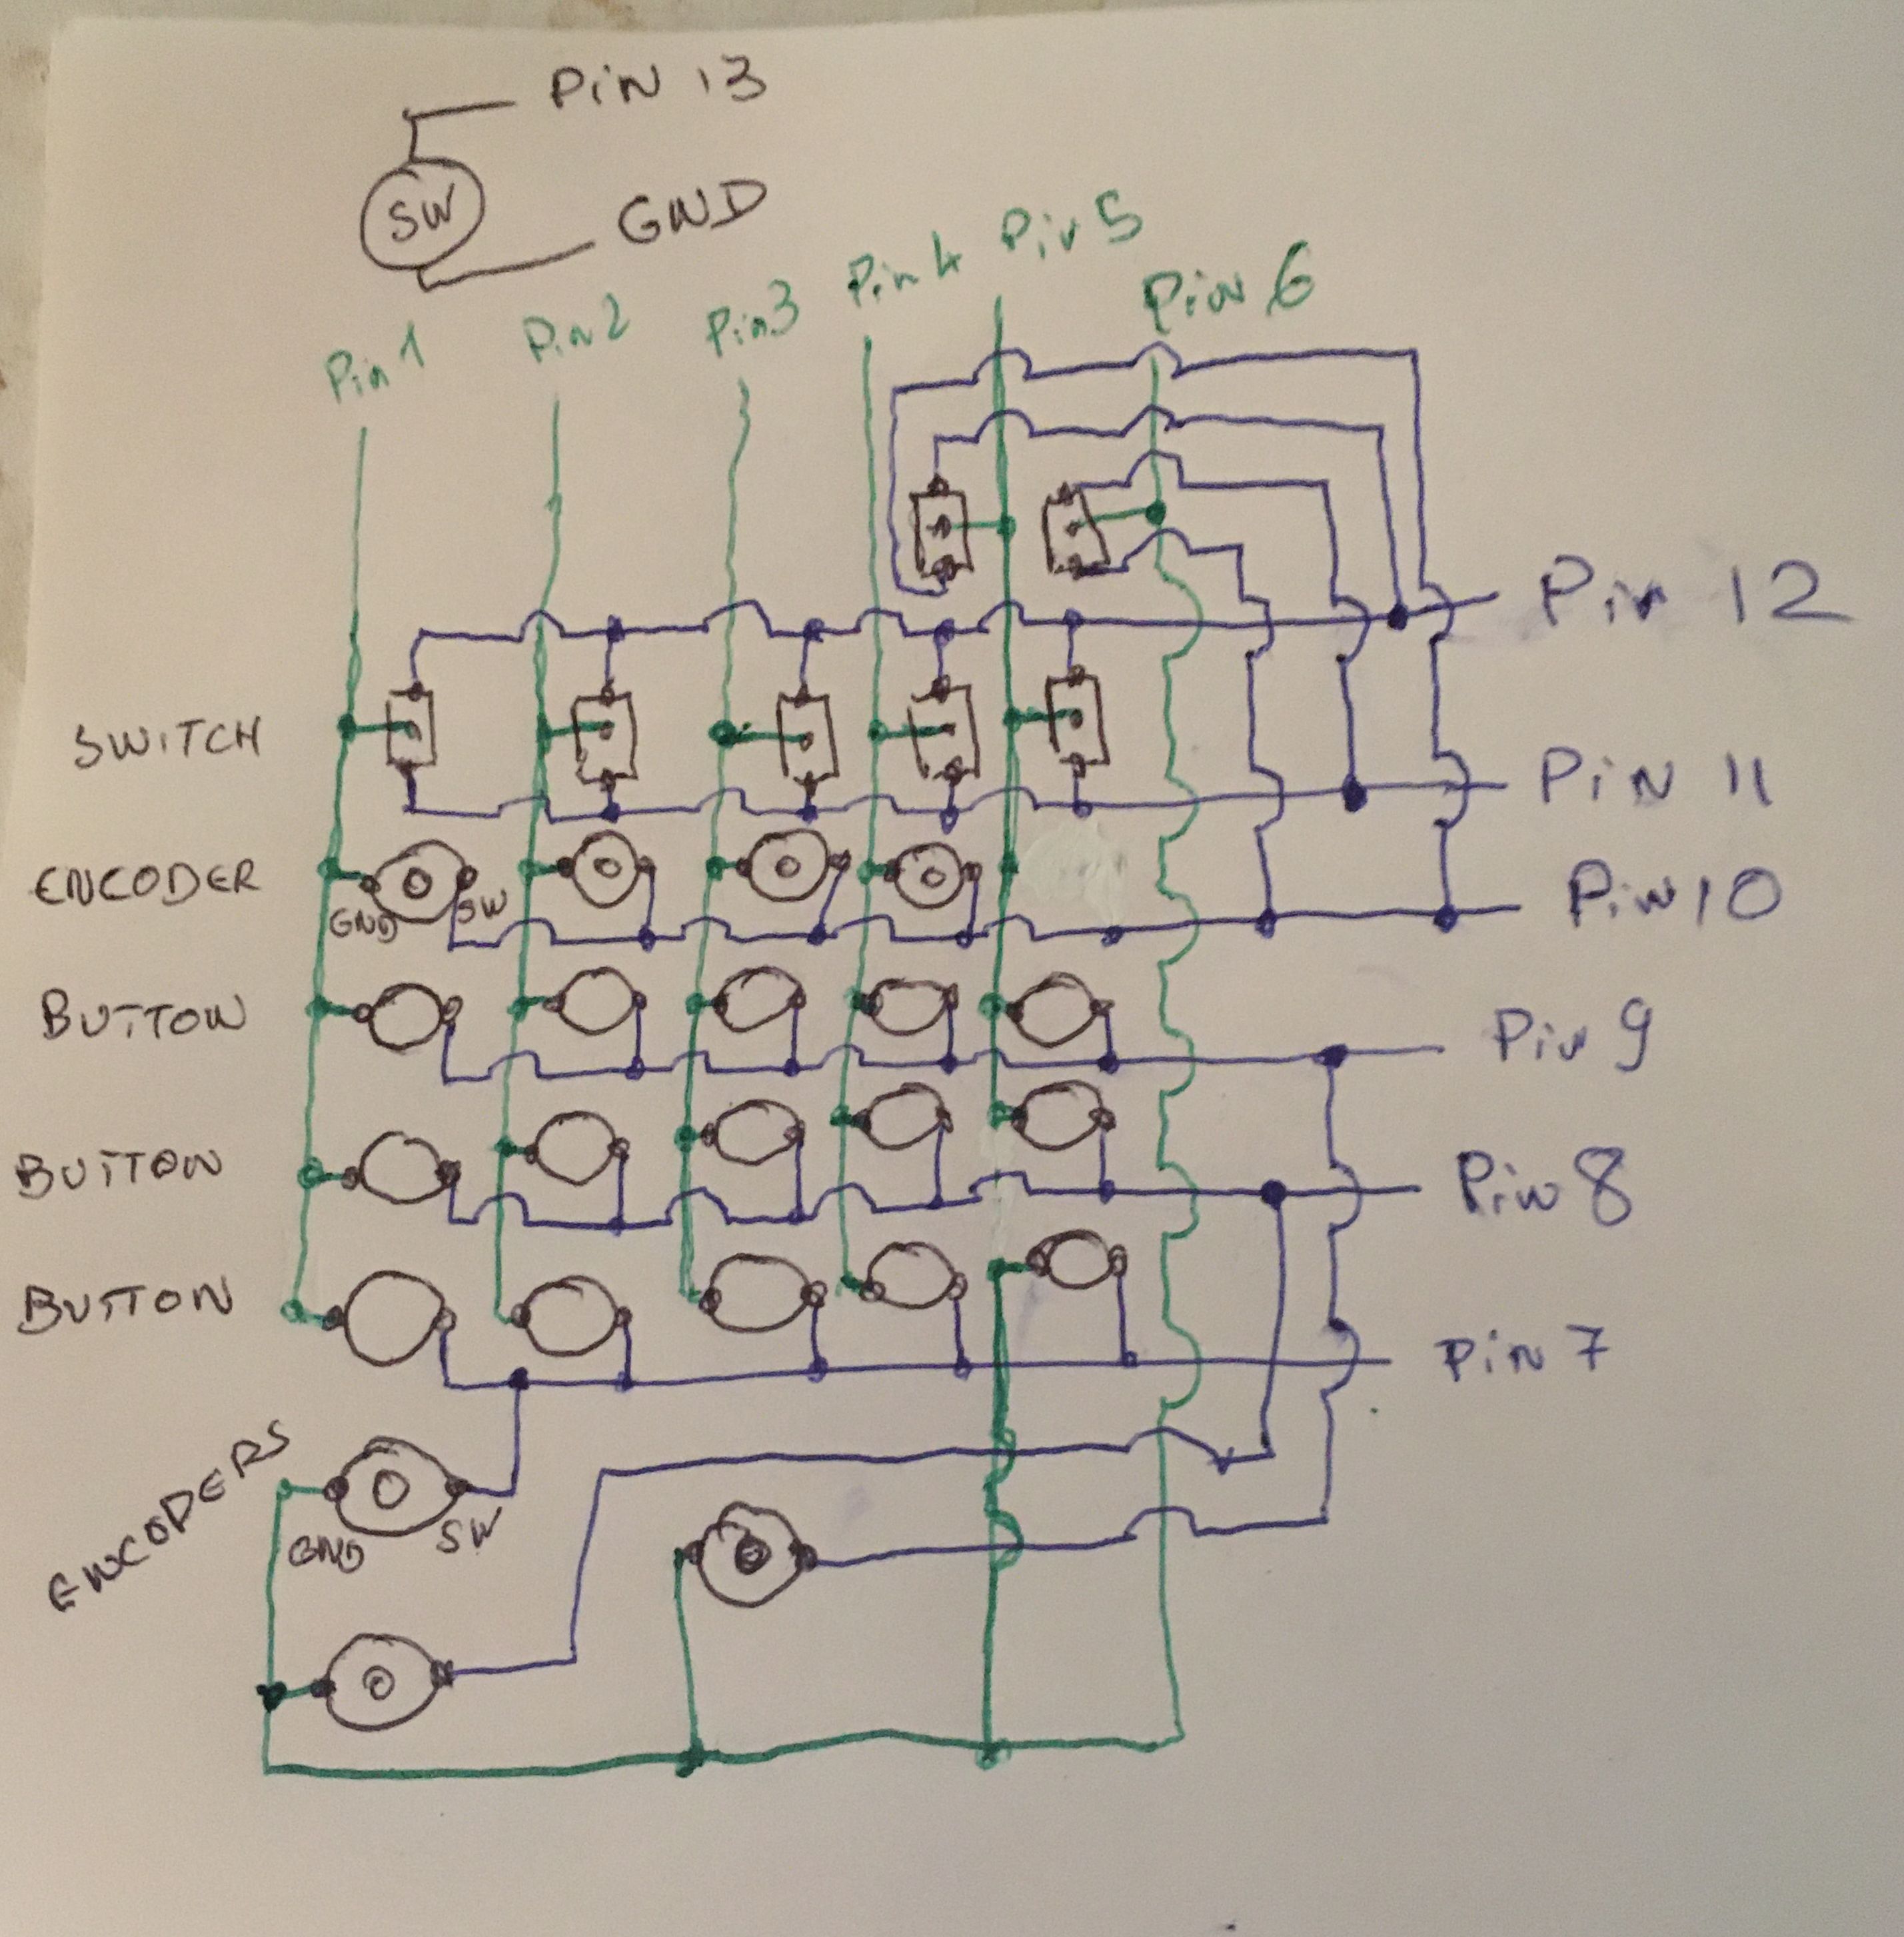 PiN 13
SW
GND
Pin 1
Pin 2
Pin 3
Pin 4
Pin 5
Pin 6
Pin 12
SWITCH
PiN 11
ENCODER
GND
SW
Pin 10
BUTTON
Pin 9
BUTTON
Pin 8
BUTTON
Pin 7
ENCODERS
GND
SW